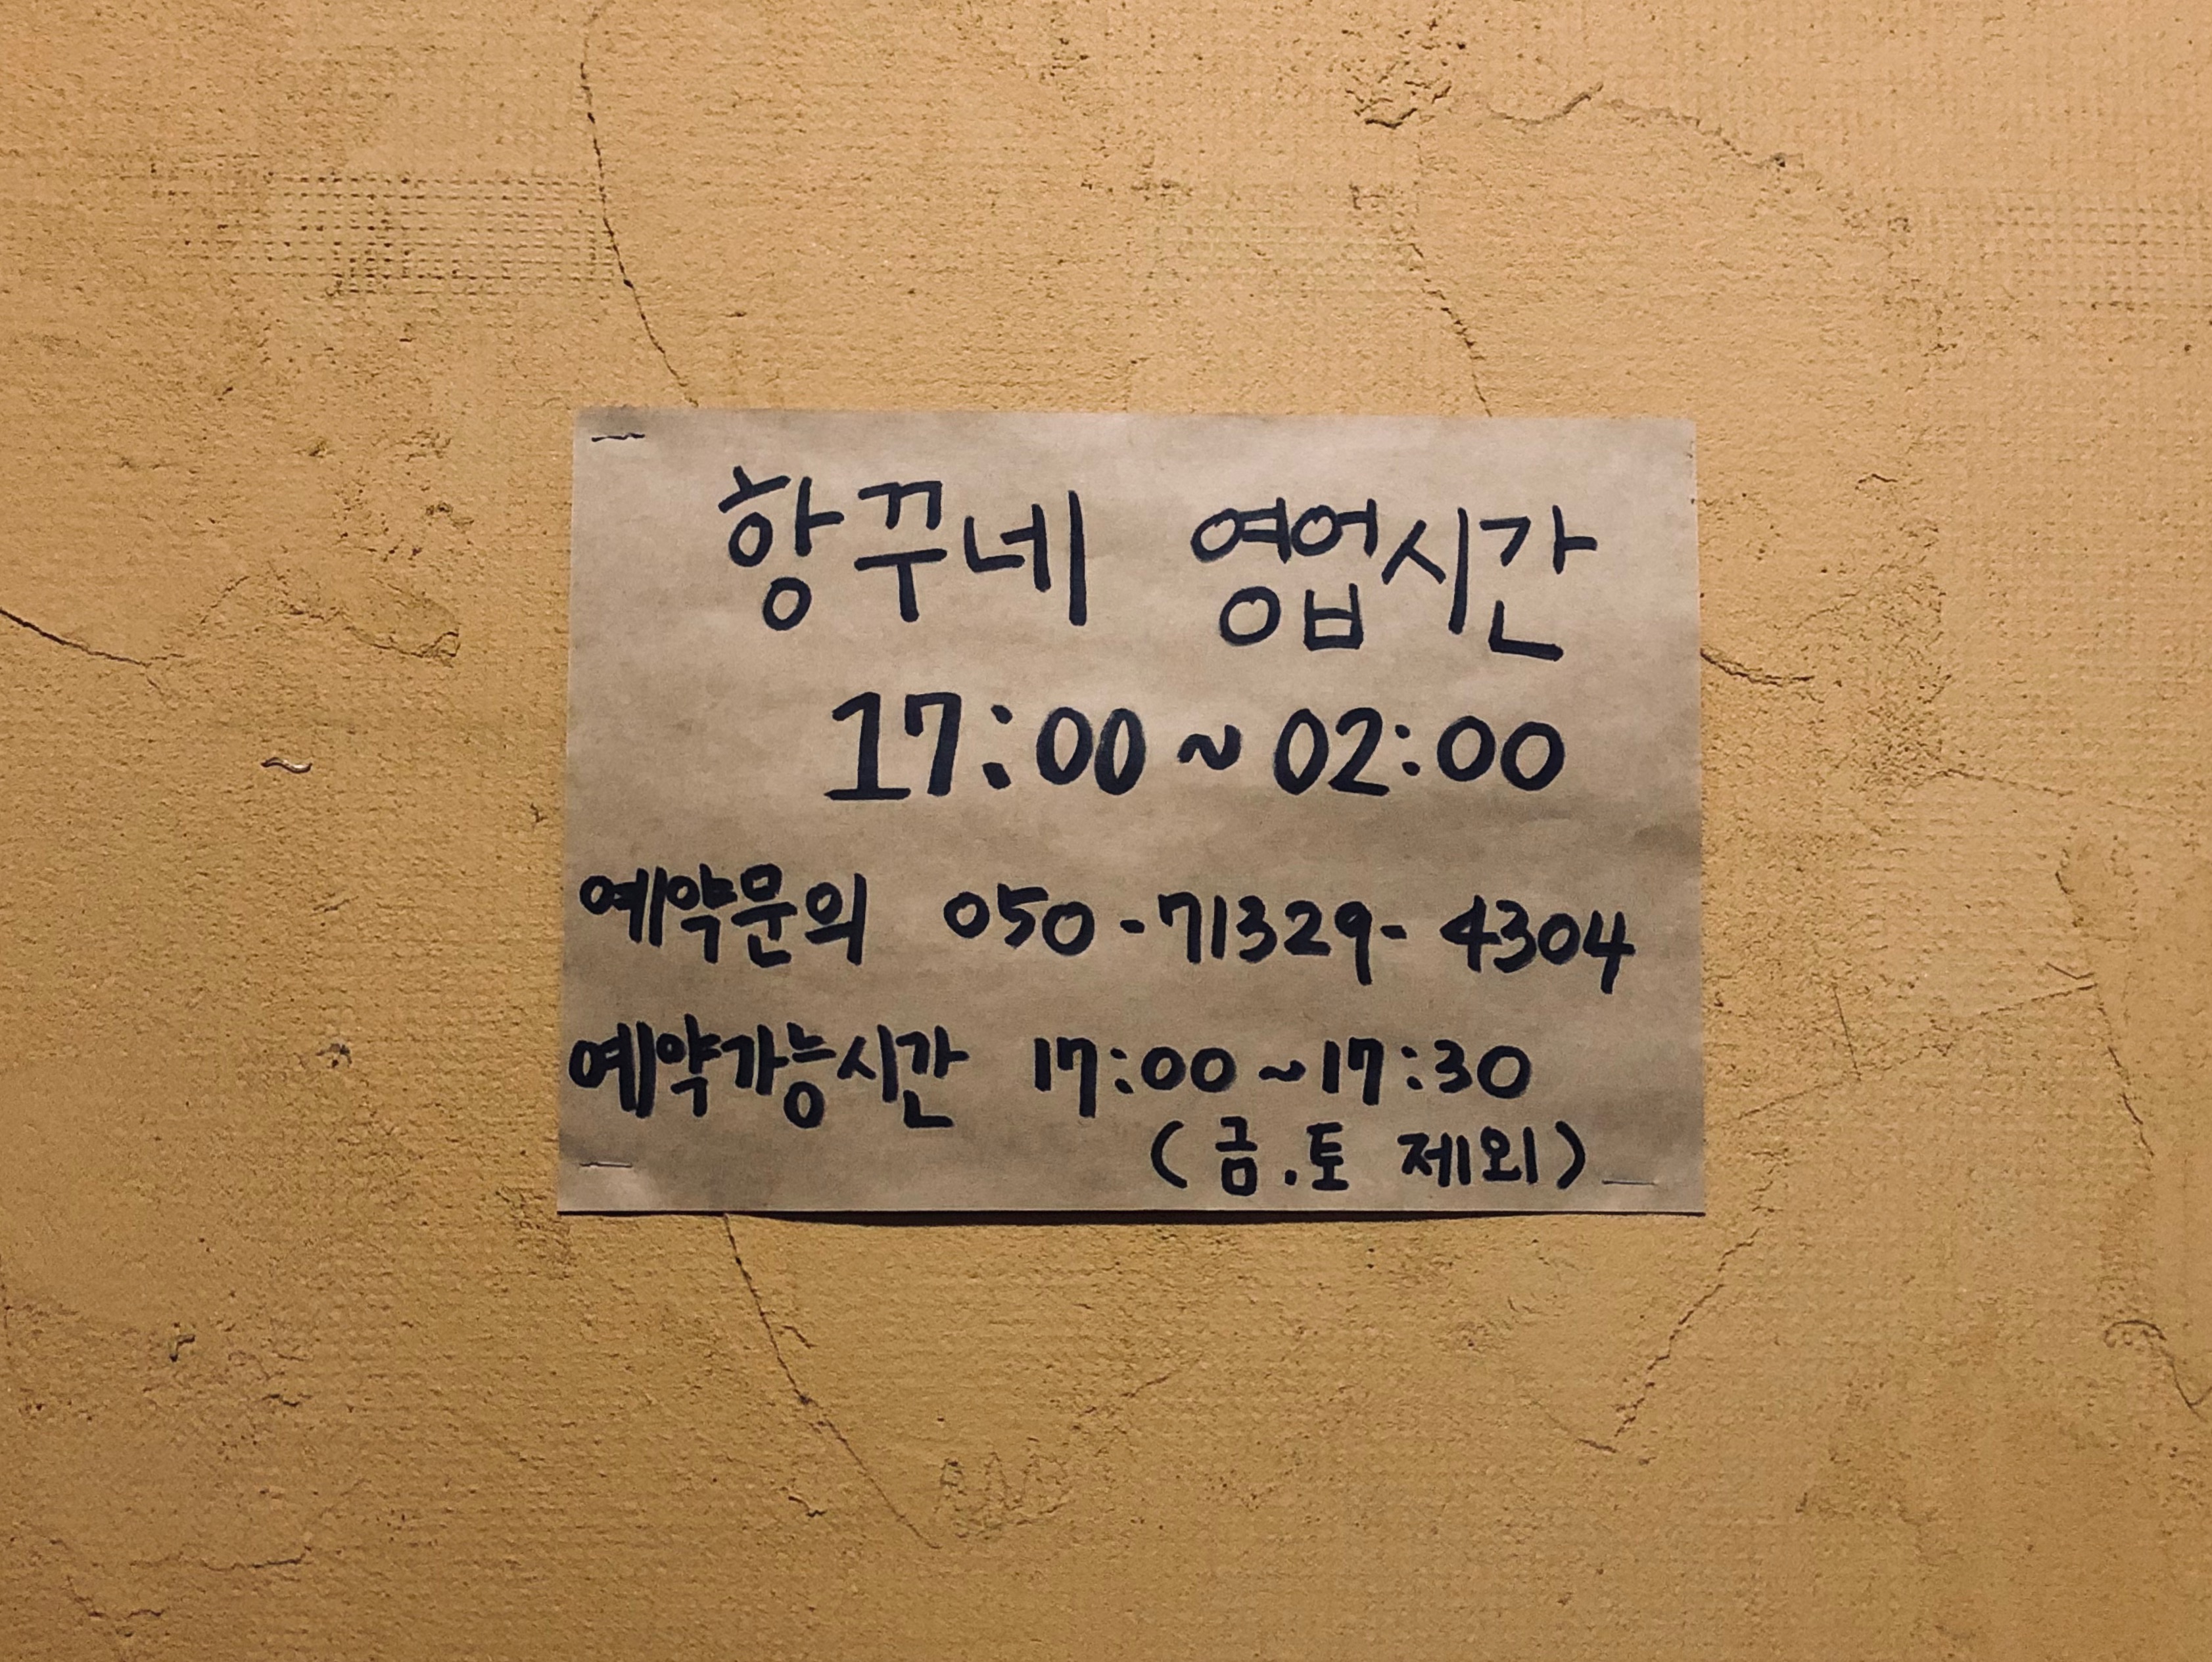 항꾸네 영업시간
17:00 ~ 02:00
예약문의 050-71329-4304
예약가능시간 17:00 ~ 17:30
(금.토 제외)